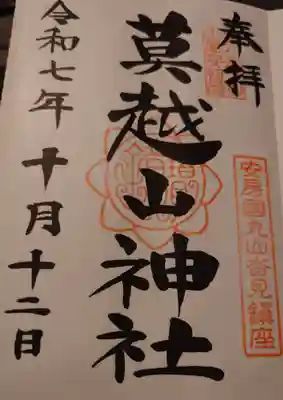 奉拝
安房国丸山沓見鎮座
莫越山神社
令和七年十月十二日